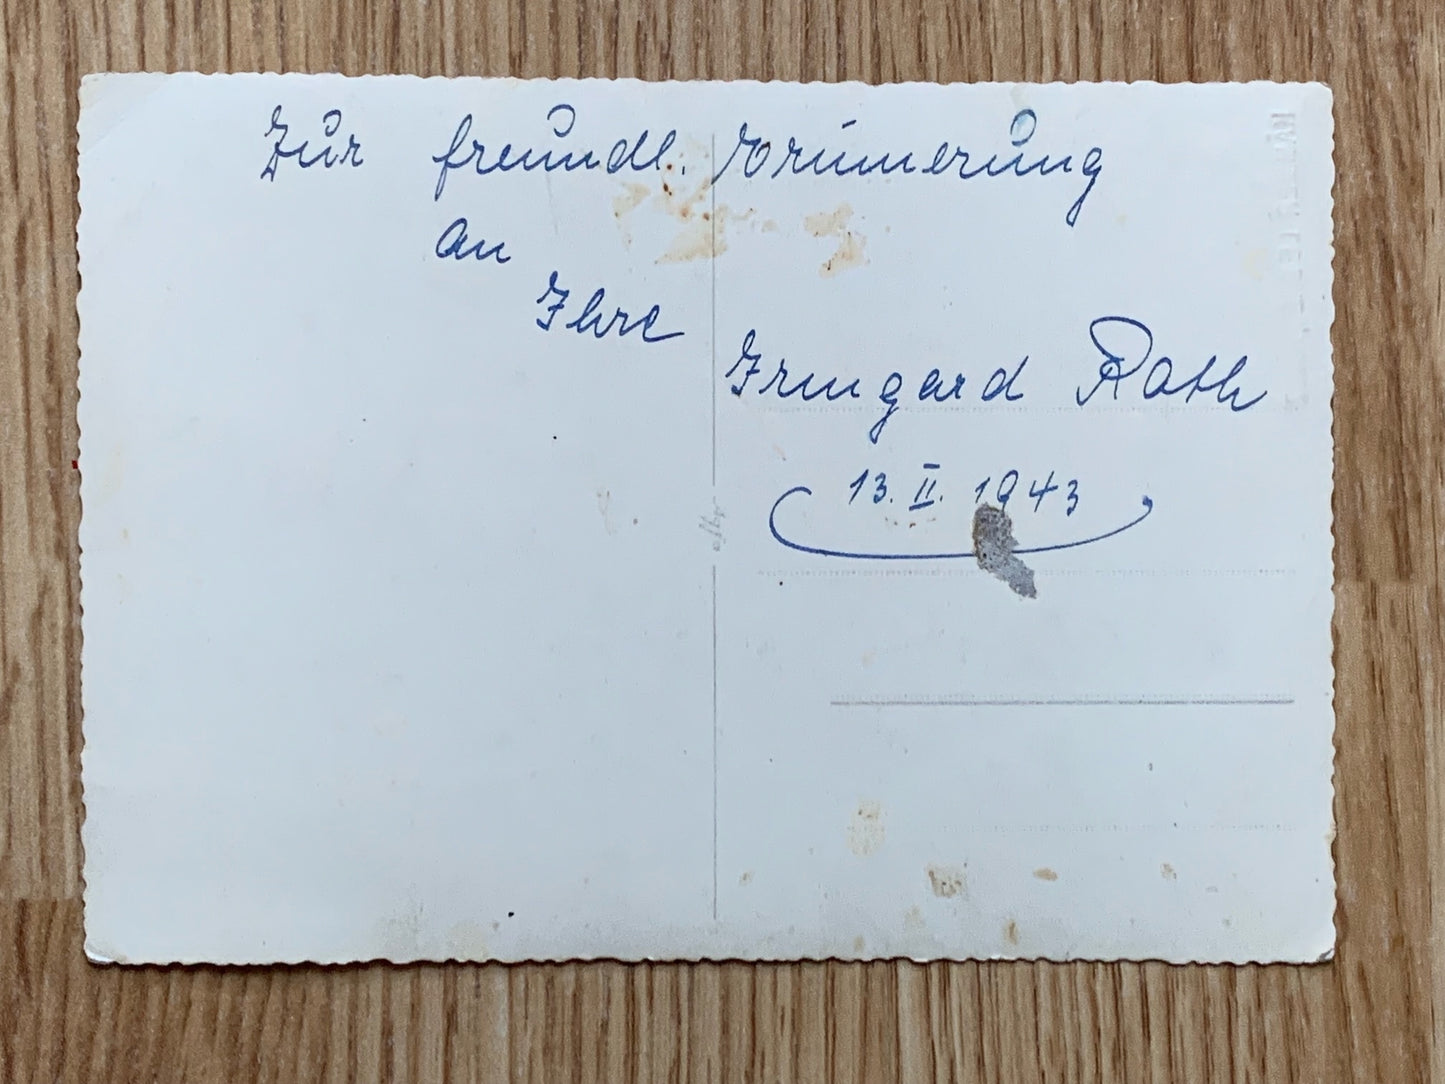 Zur freundl. Erinnerung
an
Ihre
Irmgard Roth
13. II. 1943